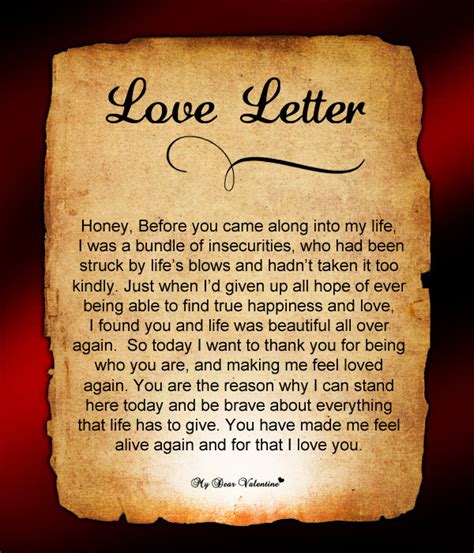 Love Letter
Honey, Before you came along into my life,
I was a bundle of insecurities, who had been
struck by life's blows and hadn't taken it too
kindly. Just when I'd given up all hope of ever
being able to find true happiness and love,
I found you and life was beautiful all over
again.  So today I want to thank you for being
who you are, and making me feel loved
again. You are the reason why I can stand
here today and be brave about everything
that life has to give. You have made me feel
alive again and for that I love you.
My Dear Valentine